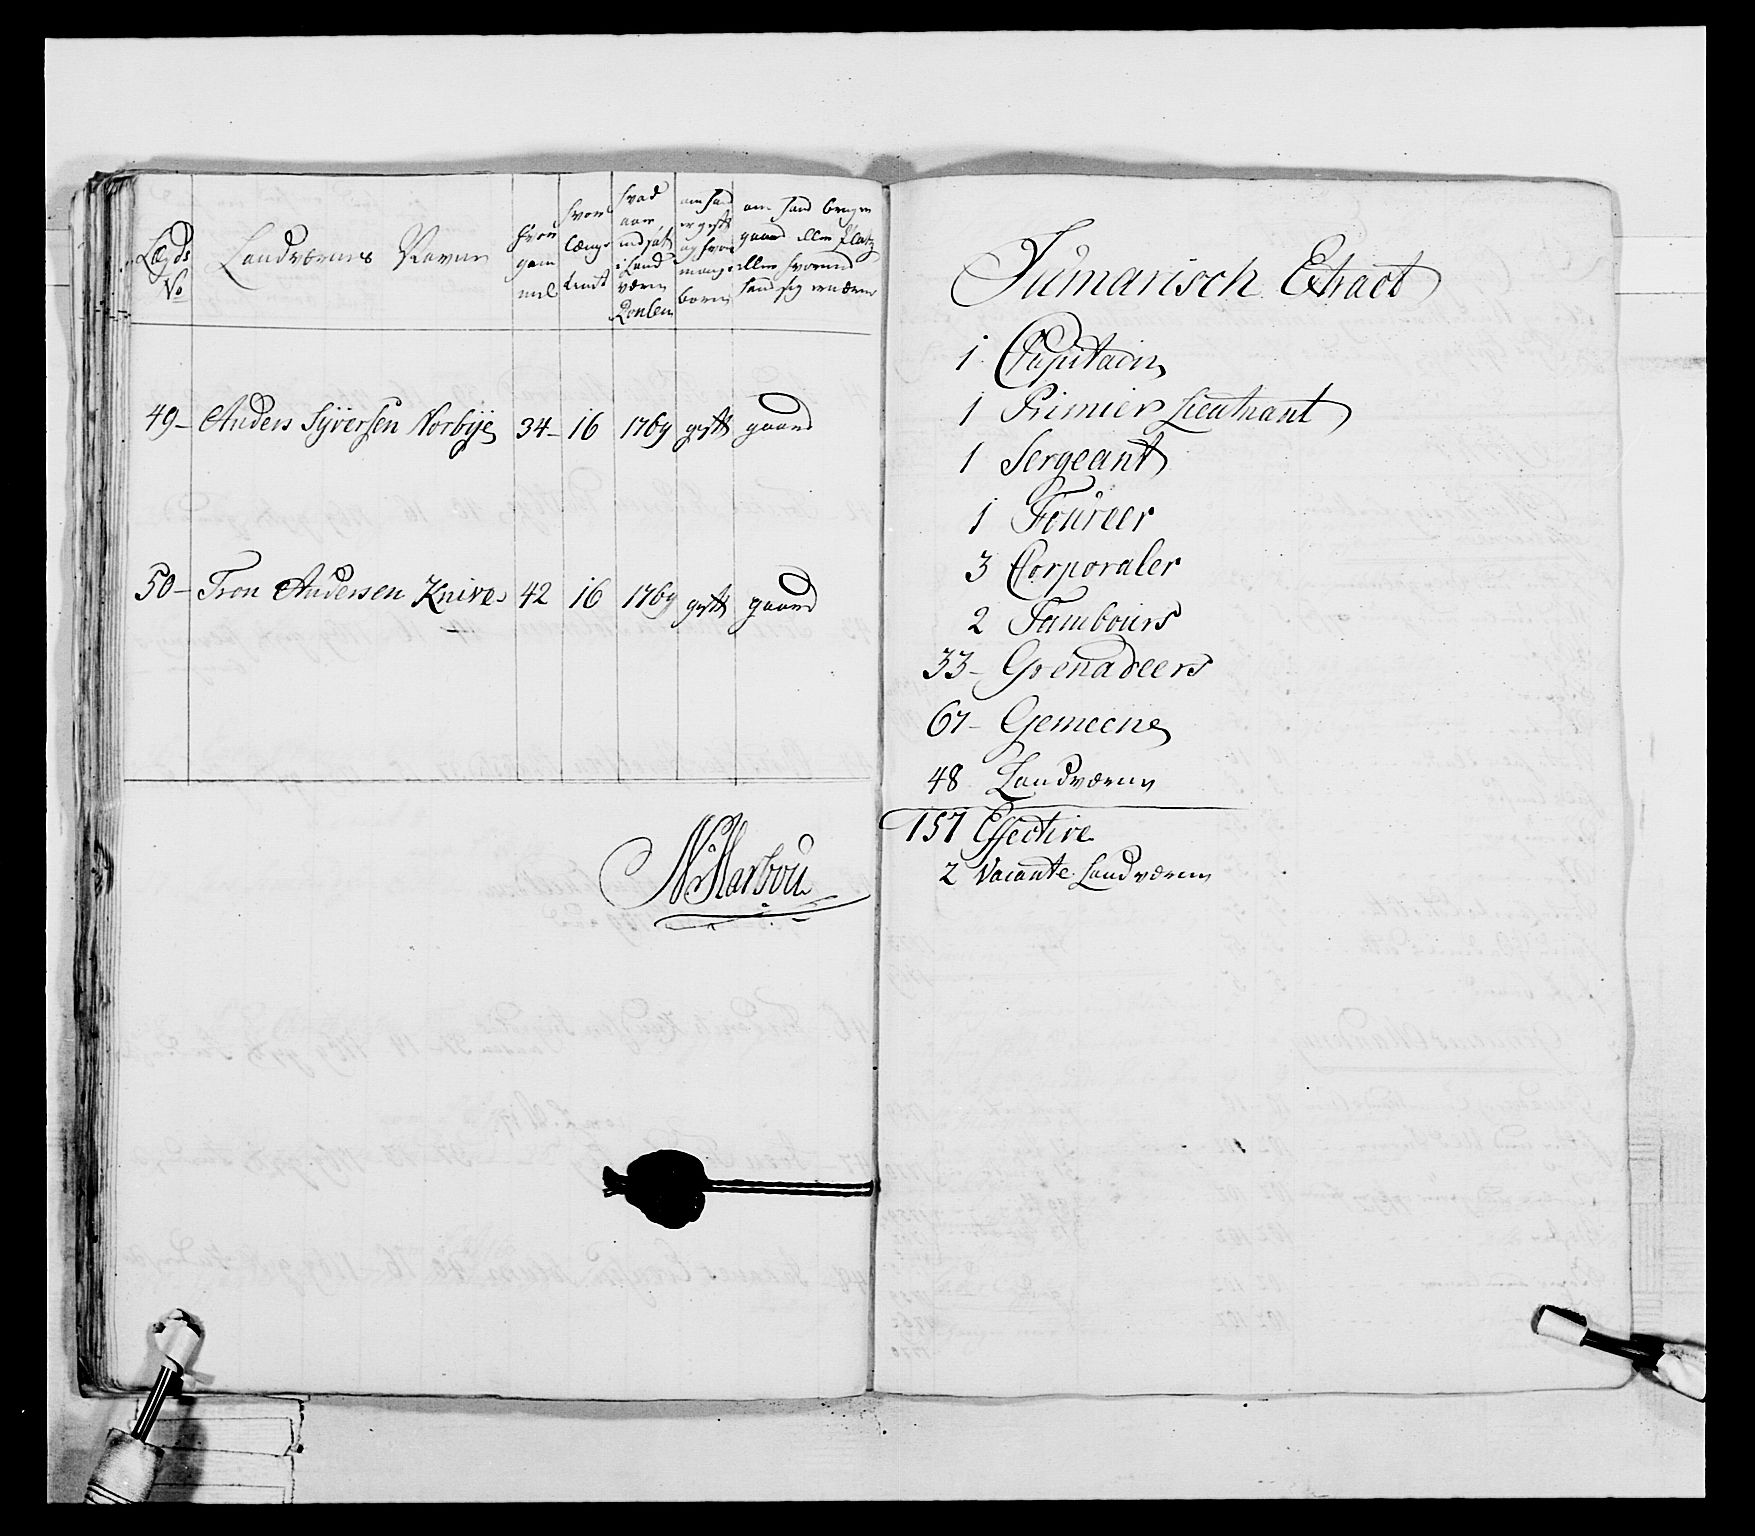 Lægds
No
Landværns Navne
hvor
gam
mel
hvor
længe
tient
hvad
aar
indsat
i Land
værn
Roulen
om hand
er gift
og hvor
mange
børn
om hand bruger
gaard eller platz
eller hvormed
hand sig ernærer
49- Anders Syversen Norbye 34- 16 1769 gift gaard
50- Tron Andersen Knive 42 16 1769 gift gaard
N: Harbou
Sumarisch Extract
1 Capitain
1 Primier Lieutnant
1 Sergeant
1 Foureer
3 Corporaler
2 Tambours
33- Grenadeers
67- Gemeene
48 Landværn
157 Effective
2 Vacante Landværn